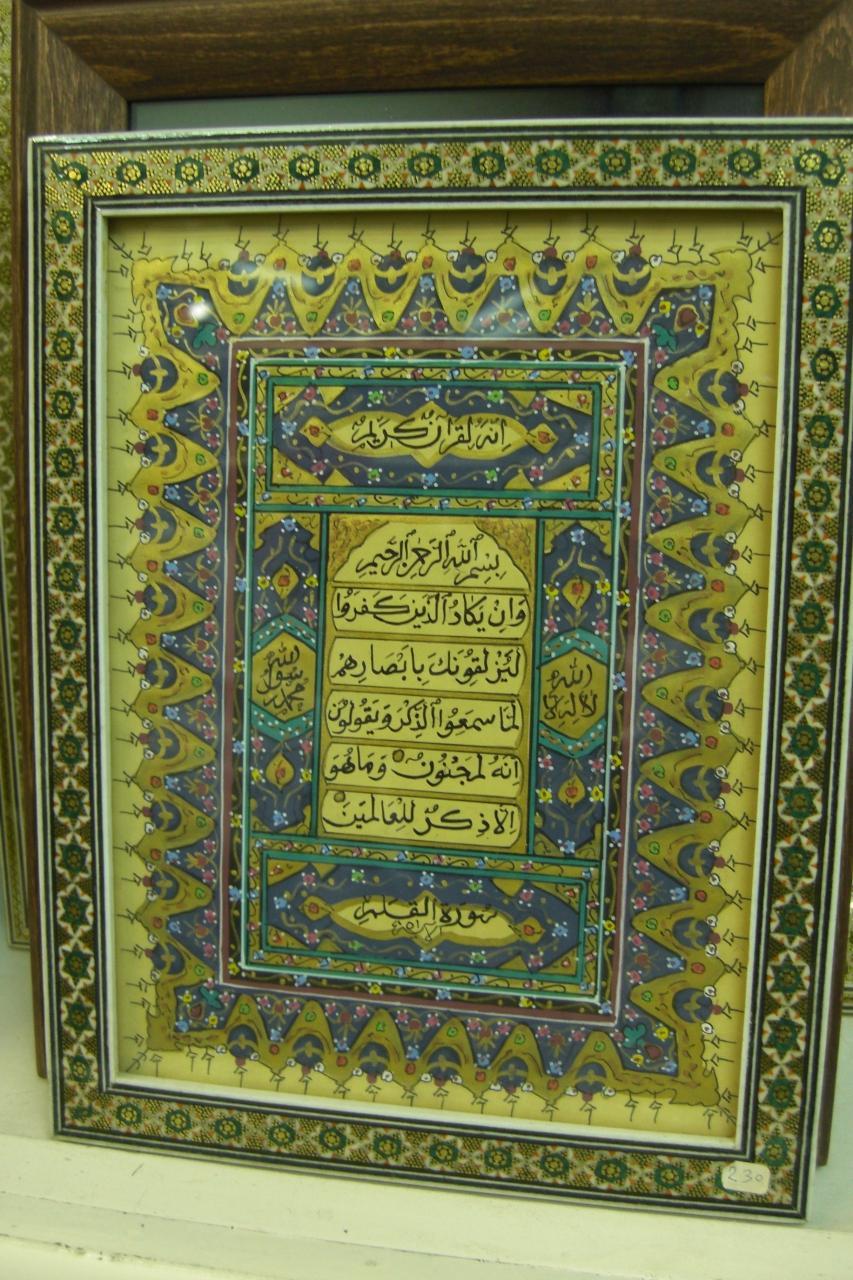 انه لقرآن كريم
بسم الله الرحمن الرحيم
وَاِنْ يَكَادُ الَّذينَ كَفَرُوا
لَيُزْلِقُونَكَ بِاَبْصَارِهِمْ
لَمَّا سَمِعُوا الذِّكْرَ وَيَقُولُونَ
اِنَّهُ لَمَجْنُونٌ وَمَا هُوَ
اِلَّا ذِكْرٌ لِلْعَالَمينَ
لا اله الا الله
محمد رسول الله
سورة القلم
230